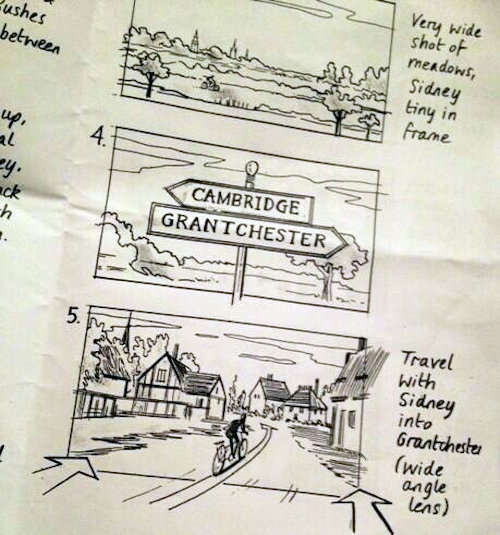 ushes
between
up,
al
ey.
ck
h
Very wide
shot of
meadows,
Sidney
tiny in
frame
4.
CAMBRIDGE
GRANTCHESTER
5.
Travel
with
Sidney
into
Grantchester
(wide
angle
lens)